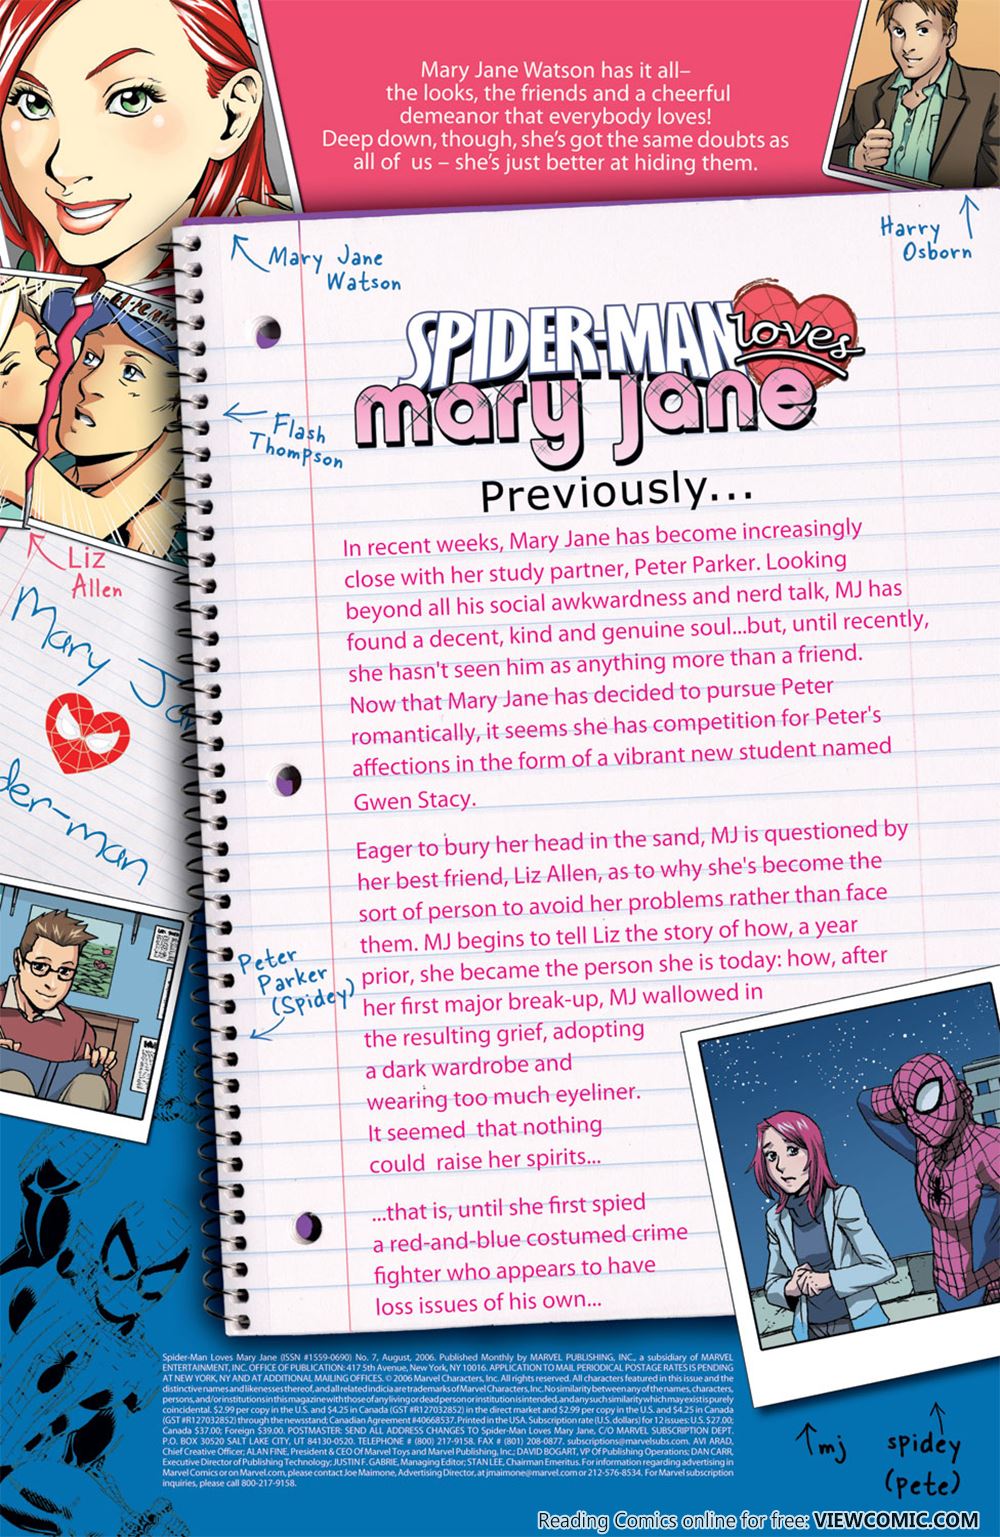 Mary Jane Watson has it all–
the looks, the friends and a cheerful
demeanor that everybody loves!
Deep down, though, she's got the same doubts as
all of us – she's just better at hiding them.
Mary Jane
Watson
Harry
Osborn
SPIDER-MAN
loves
mary jane
Flash
Thompson
Previously...
In recent weeks, Mary Jane has become increasingly
close with her study partner, Peter Parker. Looking
beyond all his social awkwardness and nerd talk, MJ has
found a decent, kind and genuine soul...but, until recently,
she hasn't seen him as anything more than a friend.
Now that Mary Jane has decided to pursue Peter
romantically, it seems she has competition for Peter's
affections in the form of a vibrant new student named
Gwen Stacy.
Liz
Allen
Mary Jan
der-man
Eager to bury her head in the sand, MJ is questioned by
her best friend, Liz Allen, as to why she's become the
sort of person to avoid her problems rather than face
them. MJ begins to tell Liz the story of how, a year
prior, she became the person she is today: how, after
her first major break-up, MJ wallowed in
the resulting grief, adopting
a dark wardrobe and
wearing too much eyeliner.
It seemed that nothing
could raise her spirits...
Peter
Parker
(Spidey)
...that is, until she first spied
a red-and-blue costumed crime
fighter who appears to have
loss issues of his own...
mj
spidey
(pete)
Spider-Man Loves Mary Jane (ISSN #1559-0690) No. 7, August, 2006. Published Monthly by MARVEL PUBLISHING, INC., a subsidiary of MARVEL
ENTERTAINMENT, INC. OFFICE OF PUBLICATION: 417 5th Avenue, New York, NY 10016. APPLICATION TO MAIL PERIODICAL POSTAGE RATES IS PENDING
AT NEW YORK, NY AND AT ADDITIONAL MAILING OFFICES. © 2006 Marvel Characters, Inc. All rights reserved. All characters featured in this issue and the
distinctive names and likenesses thereof, and all related indicia are trademarks of Marvel Characters, Inc. No similarity between any of the names, characters,
persons, and/or institutions in this magazine with those of any living or dead person or institution is intended, and any such similarity which may exist is purely
coincidental. $2.99 per copy in the U.S. and $4.25 in Canada (GST #R127032852) in the direct market and $2.99 per copy in the U.S. and $4.25 in Canada
(GST #R127032852) through the newsstand; Canadian Agreement #40668537. Printed in the USA. Subscription rate (U.S. dollars) for 12 issues: U.S. $27.00;
Canada $37.00; Foreign $39.00. POSTMASTER: SEND ALL ADDRESS CHANGES TO Spider-Man Loves Mary Jane, C/O MARVEL SUBSCRIPTION DEPT.
P.O. BOX 30520 SALT LAKE CITY, UT 84130-0520. TELEPHONE # (800) 217-9158. FAX # (801) 208-0877. subscriptions@marvelsubs.com. AVI ARAD,
Chief Creative Officer; ALAN FINE, President & CEO Of Marvel Toys and Marvel Publishing, Inc.; DAVID BOGART, VP Of Publishing Operations; DAN CARR,
Executive Director of Publishing Technology; JUSTIN F. GABRIE, Managing Editor; STAN LEE, Chairman Emeritus. For information regarding advertising in
Marvel Comics or on Marvel.com, please contact Joe Maimone, Advertising Director, at jmaimone@marvel.com or 212-576-8534. For Marvel subscription
inquiries, please call 800-217-9158.
Reading Comics online for free: VIEWCOMIC.COM